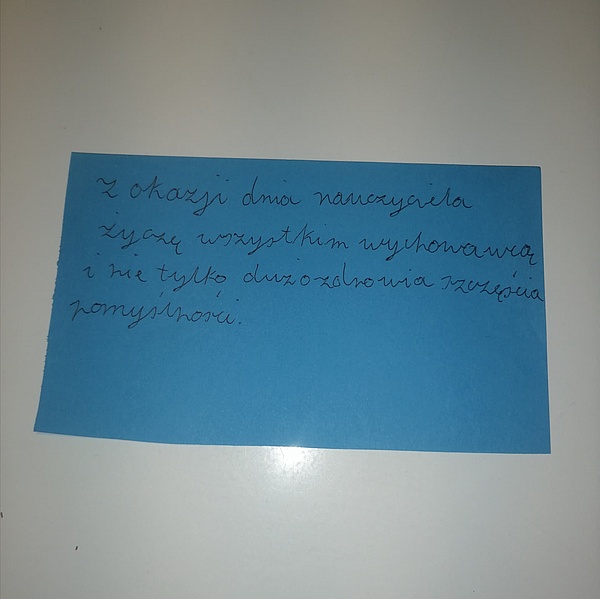 Z okazji dnia nauczyciela
życzę wszystkim wychowawcą
i nie tylko dużo zdrowia szczęścia
pomyślności.